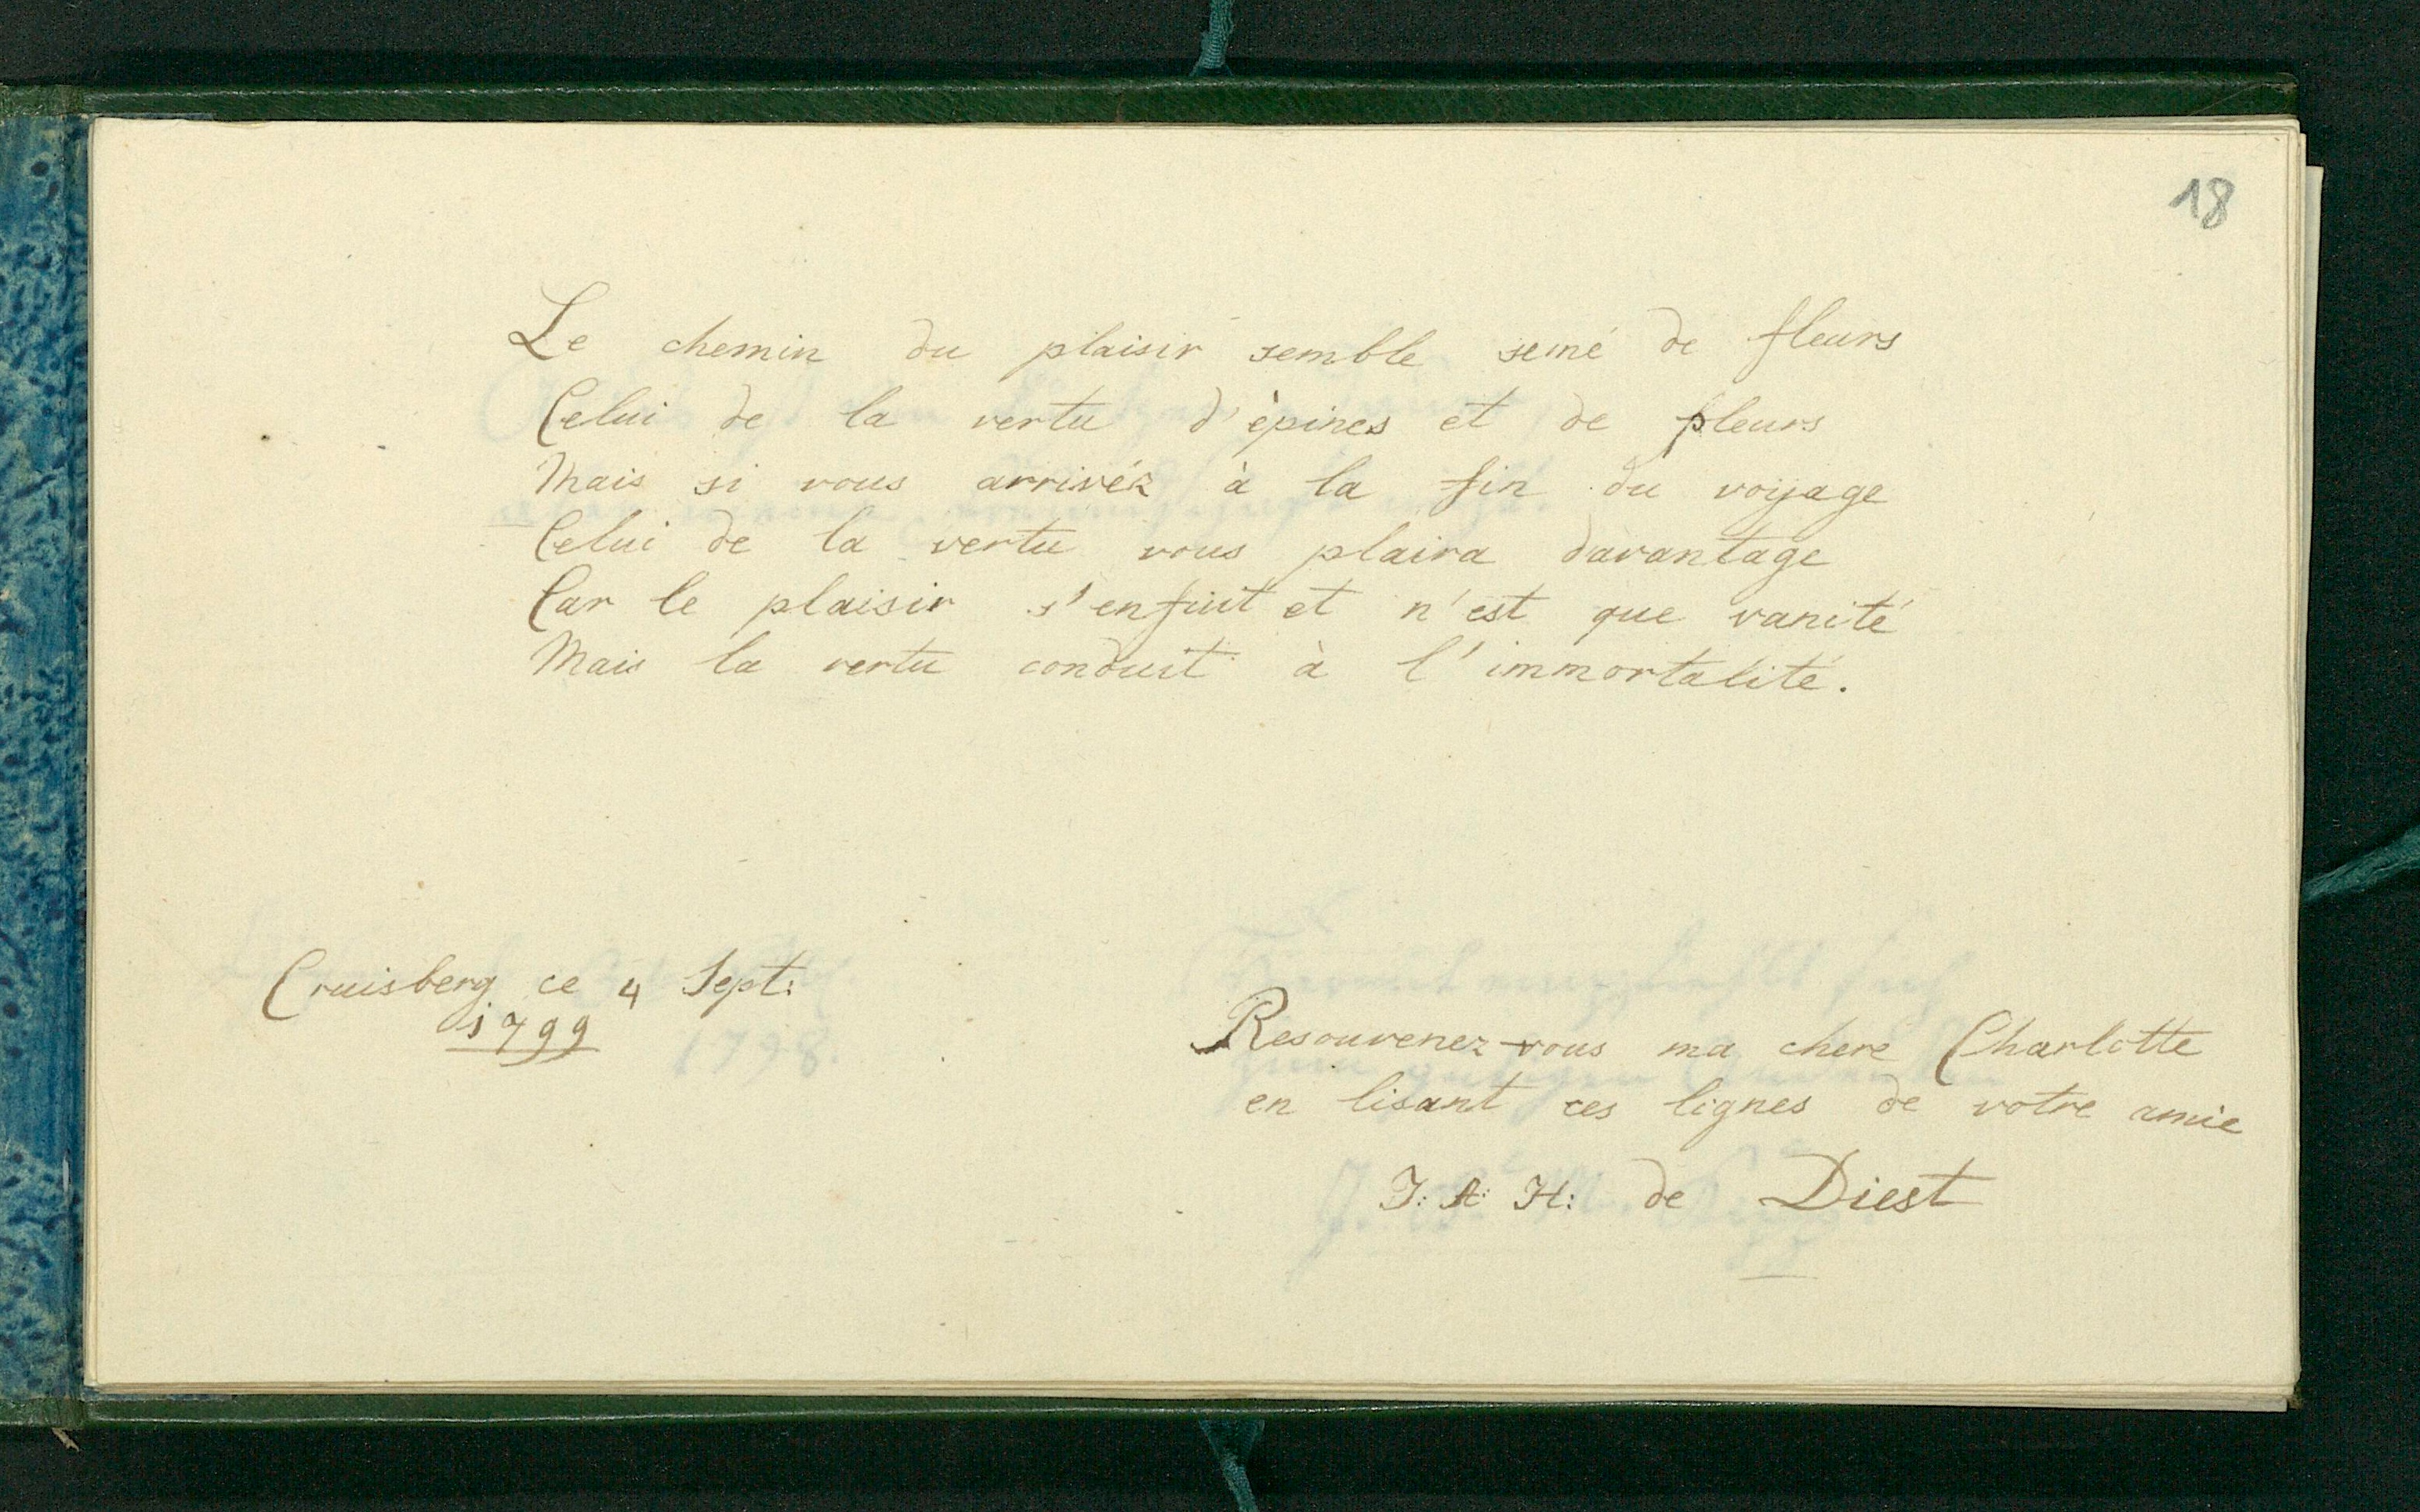 18
Le chemin du plaisir semble semé de fleurs
Celui de la vertu d'èpines et de pleurs
Mais si vous arrivéz à la fin du voyage
Celui de la vertu vous plaira davantage
Car le plaisir s'enfuit et n'est que vanité
Mais la vertu conduit à l'immortalité.
Cruisberg ce 4 Sept:
1799
Resouvenez-vous ma chere Charlotte
en lisant ces lignes de votre amie
J: A: H: de Diest